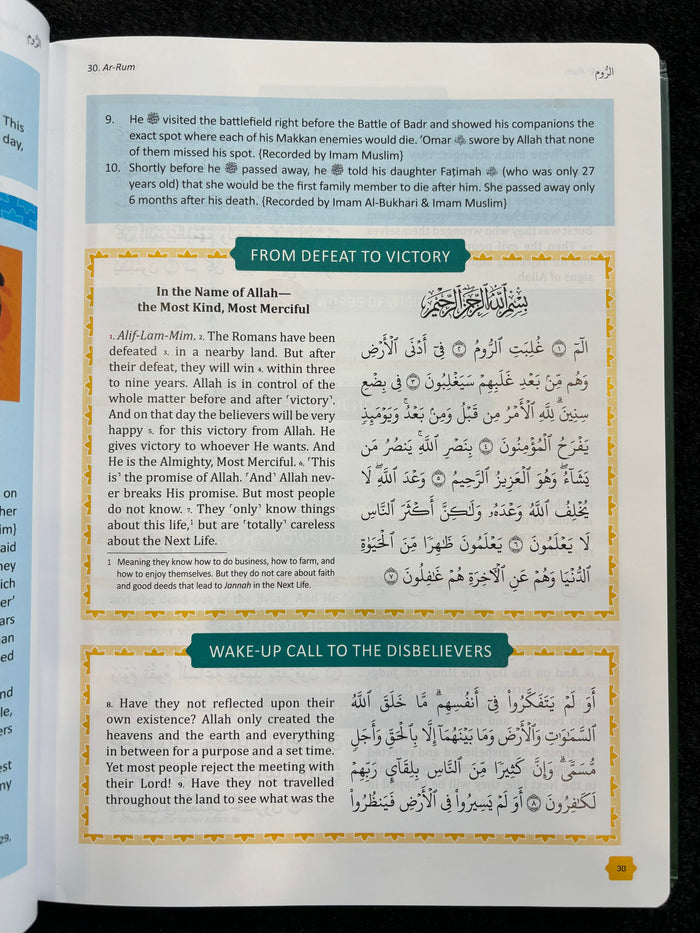 30. Ar-Rum
الرُّوم
9. He ﷺ visited the battlefield right before the Battle of Badr and showed his companions the
exact spot where each of his Makkan enemies would die. 'Omar swore by Allah that none
of them missed his spot. {Recorded by Imam Muslim}
10. Shortly before he ﷺ passed away, he ﷺ told his daughter Faṭimah (who was only 27
years old) that she would be the first family member to die after him. She passed away only
6 months after his death. {Recorded by Imam Al-Bukhari & Imam Muslim}
FROM DEFEAT TO VICTORY
In the Name of Allah—
the Most Kind, Most Merciful
1. Alif-Lam-Mim. 2. The Romans have been
defeated 3. in a nearby land. But after
their defeat, they will win 4. within three
to nine years. Allah is in control of the
whole matter before and after ˹victory˺.
And on that day the believers will be very
happy 5. for this victory from Allah. He
gives victory to whoever He wants. And
He is the Almighty, Most Merciful. 6. ˹This
is˺ the promise of Allah. ˹And˺ Allah nev-
er breaks His promise. But most people
do not know. 7. They ˹only˺ know things
about this life,¹ but are ˹totally˺ careless
about the Next Life.
1 Meaning they know how to do business, how to farm, and
how to enjoy themselves. But they do not care about faith
and good deeds that lead to Jannah in the Next Life.
بِسْمِ ٱللَّهِ ٱلرَّحْمَٰنِ ٱلرَّحِيمِ
الٓمٓ ١ غُلِبَتِ ٱلرُّومُ ٢ فِىٓ أَدْنَى ٱلْأَرْضِ
وَهُم مِّنۢ بَعْدِ غَلَبِهِمْ سَيَغْلِبُونَ ٣ فِى بِضْعِ
سِنِينَۗ لِلَّهِ ٱلْأَمْرُ مِن قَبْلُ وَمِنۢ بَعْدُۚ وَيَوْمَئِذٍ
يَفْرَحُ ٱلْمُؤْمِنُونَ ٤ بِنَصْرِ ٱللَّهِۚ يَنصُرُ مَن
يَشَآءُۖ وَهُوَ ٱلْعَزِيزُ ٱلرَّحِيمُ ٥ وَعْدَ ٱللَّهِۖ لَا
يُخْلِفُ ٱللَّهُ وَعْدَهُۥ وَلَٰكِنَّ أَكْثَرَ ٱلنَّاسِ
لَا يَعْلَمُونَ ٦ يَعْلَمُونَ ظَٰهِرًا مِّنَ ٱلْحَيَوٰةِ
ٱلدُّنْيَا وَهُمْ عَنِ ٱلْـَٔاخِرَةِ هُمْ غَٰفِلُونَ ٧
WAKE-UP CALL TO THE DISBELIEVERS
8. Have they not reflected upon their
own existence? Allah only created the
heavens and the earth and everything
in between for a purpose and a set time.
Yet most people reject the meeting with
their Lord! 9. Have they not travelled
throughout the land to see what was the
أَوَلَمْ يَتَفَكَّرُوا۟ فِىٓ أَنفُسِهِمۗ مَّا خَلَقَ ٱللَّهُ
ٱلسَّمَٰوَٰتِ وَٱلْأَرْضَ وَمَا بَيْنَهُمَآ إِلَّا بِٱلْحَقِّ وَأَجَلٍ
مُّسَمًّىۗ وَإِنَّ كَثِيرًا مِّنَ ٱلنَّاسِ بِلِقَآئِ رَبِّهِمْ
لَكَٰفِرُونَ ٨ أَوَلَمْ يَسِيرُوا۟ فِى ٱلْأَرْضِ فَيَنظُرُوا۟
30